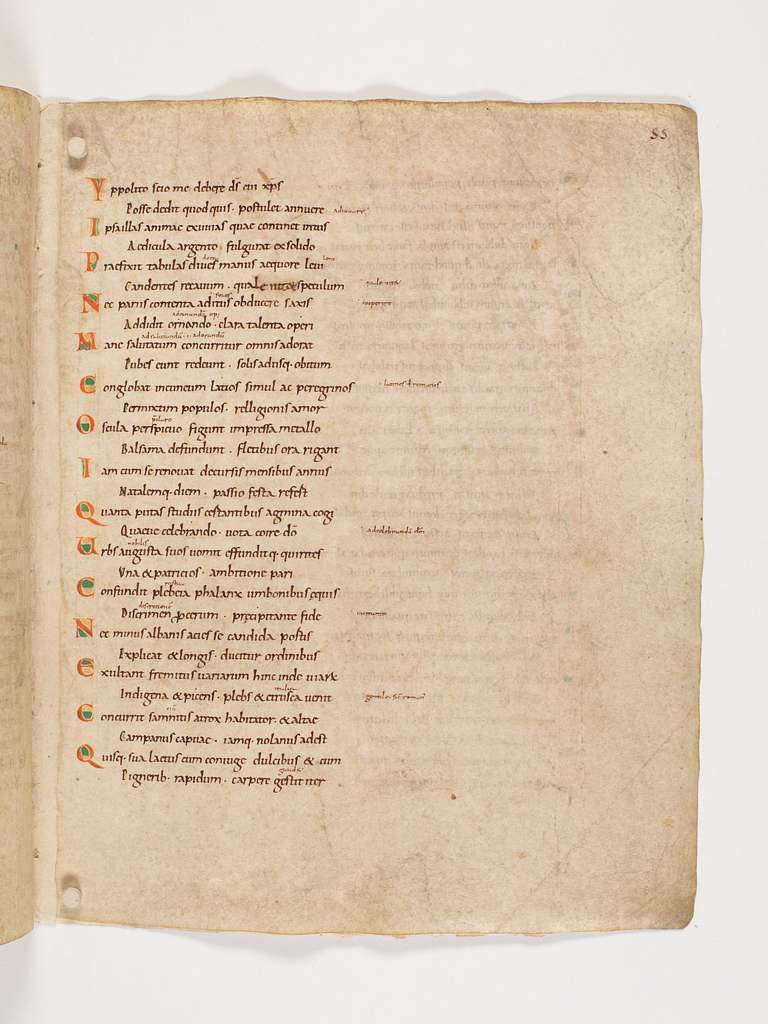 85
Yppolito scio me debere ds cui xps
Posse dedit quod quis · postulet annuere
Ipsa illas animae exuvias quae continet intus
Aedicula argento · fulgurat ex solido
Praefixit tabulas dives manus aequore levi
Candentes recavum · quale nitet speculum
Nec pariis contenta aditus obducere saxis
Addidit ornando · clara talenta operi
Mane salutatum concurritur omnis adorat
Pubes eunt redeunt · solis adusq· obitum
Conglobat incuneum latios simul ac peregrinos
Permixtim populos · relligionis amor
Oscula perspicuo figunt impressa metallo
Balsama defundunt · fletibus ora rigant
Iam cum se renovat decursis mensibus annus
Natalemq· diem · passio festa refert
Quanta putas studiis certantibus agmina cogi
Quaeve celebrando · vota coire do
Urbs augusta suos vomit effunditq· quirites
Una & patricios · ambitione pari
Confundit plebeia phalanx umbonibus equis
Discrimen procerum · precipitante fide
Nec minus albanis acies se candida portis
Explicat & longis · ducitur ordinibus
Exultant fremitus variarum hinc inde viarum
Indigena & picens · plebs & etrusca venit
Concurrit samnitis atrox habitator · & altae
Campanus capuae · iamq· nolanus adest
Quisq· sua laetus cum coniuge dulcibus & cum
Pignerib· rapidum · carpere gestit iter